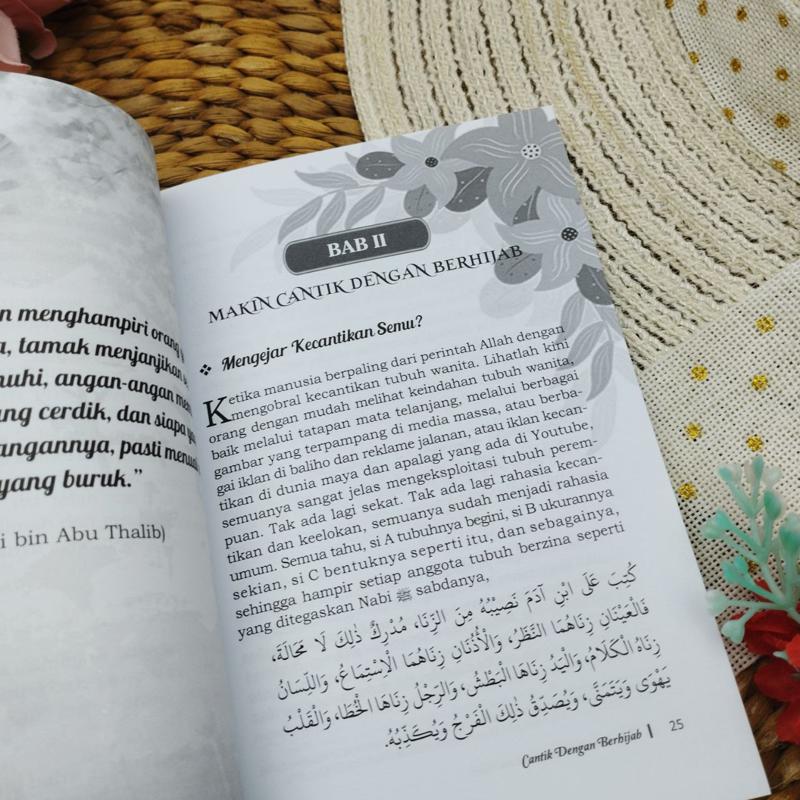 n menghampiri orang
a, tamak menjanjikan
nuhi, angan-angan men
ang cerdik, dan siapa ya
angannya, pasti menuai
yang buruk.”
i bin Abu Thalib)
BAB II
MAKIN CANTIK DENGAN BERHIJAB
❖ Mengejar Kecantikan Semu?
Ketika manusia berpaling dari perintah Allah dengan
mengobral kecantikan tubuh wanita. Lihatlah kini
orang dengan mudah melihat keindahan tubuh wanita,
baik melalui tatapan mata telanjang, melalui berbagai
gambar yang terpampang di media massa, atau berba-
gai iklan di baliho dan reklame jalanan, atau iklan kecan-
tikan di dunia maya dan apalagi yang ada di Youtube,
semuanya sangat jelas mengeksploitasi tubuh perem-
puan. Tak ada lagi sekat. Tak ada lagi rahasia kecan-
tikan dan keelokan, semuanya sudah menjadi rahasia
umum. Semua tahu, si A tubuhnya begini, si B ukurannya
sekian, si C bentuknya seperti itu, dan sebagainya,
sehingga hampir setiap anggota tubuh berzina seperti
yang ditegaskan Nabi ﷺ sabdanya,
كُتِبَ عَلَى ابْنِ آدَمَ نَصِيْبُهُ مِنَ الزِّنَا، مُدْرِكٌ ذٰلِكَ لَا مَحَالَةَ،
فَالْعَيْنَانِ زِنَاهُمَا النَّظَرُ، وَالْأُذُنَانِ زِنَاهُمَا الْاِسْتِمَاعُ، وَاللِّسَانُ
زِنَاهُ الْكَلَامُ، وَالْيَدُ زِنَاهَا الْبَطْشُ، وَالرِّجْلُ زِنَاهَا الْخُطَا، وَالْقَلْبُ
يَهْوَى وَيَتَمَنَّى، وَيُصَدِّقُ ذٰلِكَ الْفَرْجُ وَيُكَذِّبُهُ.
Cantik Dengan Berhijab | 25